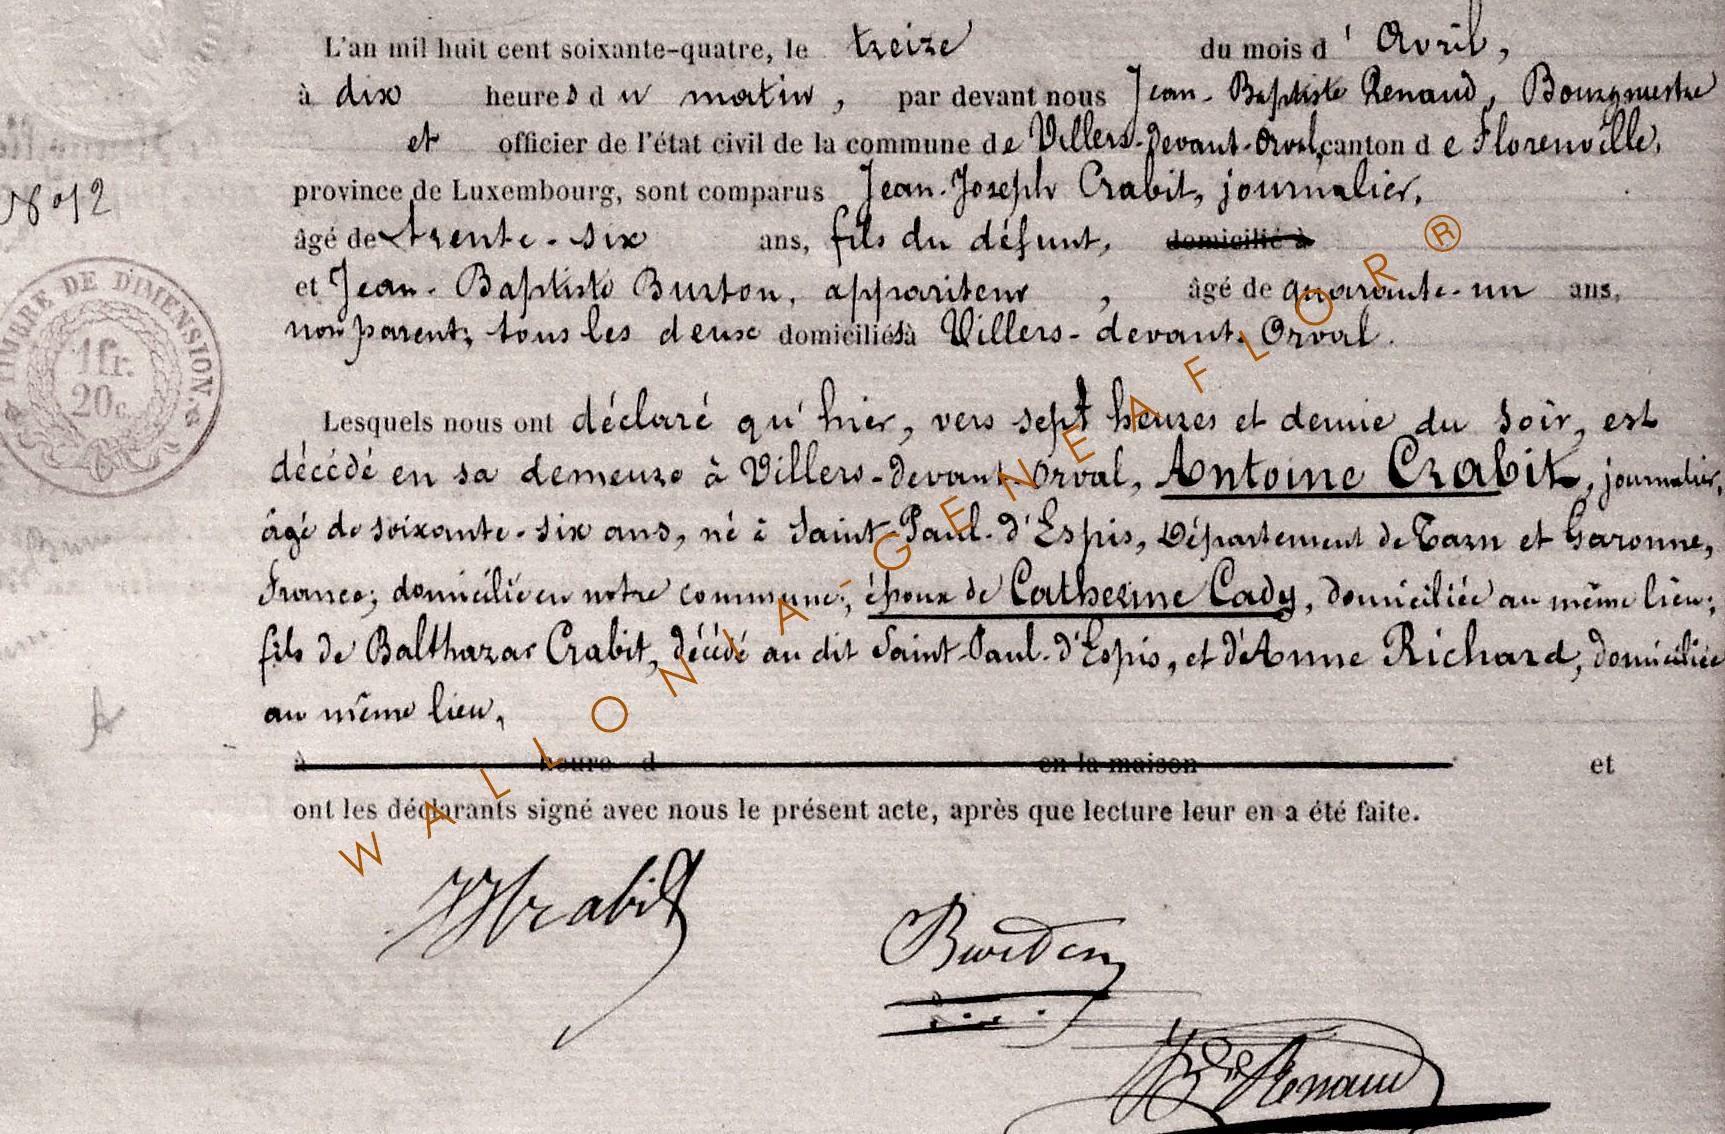 L'an mil huit cent soixante-quatre, le treize du mois d'Avril,
à dix heures du matin, par devant nous Jean-Baptiste Renaud, Bourgmestre
et officier de l'état civil de la commune de Villers-devant-Orval, canton de Florenville,
N° 12
province de Luxembourg, sont comparus Jean-Joseph Crabit, journalier,
âgé de trente-six ans, fils du défunt, domicilié à
et Jean-Baptiste Burton, appariteur, âgé de quarante-un ans,
non parent, tous les deux domiciliés à Villers-devant-Orval.
TIMBRE DE DIMENSION.
1 fr.
20 c.
Lesquels nous ont déclaré qu'hier, vers sept heures et demie du soir, est
décédé en sa demeure à Villers-devant-Orval, Antoine Crabit, journalier,
âgé de soixante-six ans, né à Saint-Paul-d'Espis, Département de Tarn et Garonne,
France; domicilié en notre commune; époux de Catherine Cady, domiciliée au même lieu;
fils de Balthazar Crabit, décédé au dit Saint-Paul-d'Espis, et d'Anne Richard, domiciliée
au même lieu,
à heure d en la maison et
ont les déclarants signé avec nous le présent acte, après que lecture leur en a été faite.
JJCrabit
Burton
JBte Renaud
WALLONIA-GENEAFLOR®